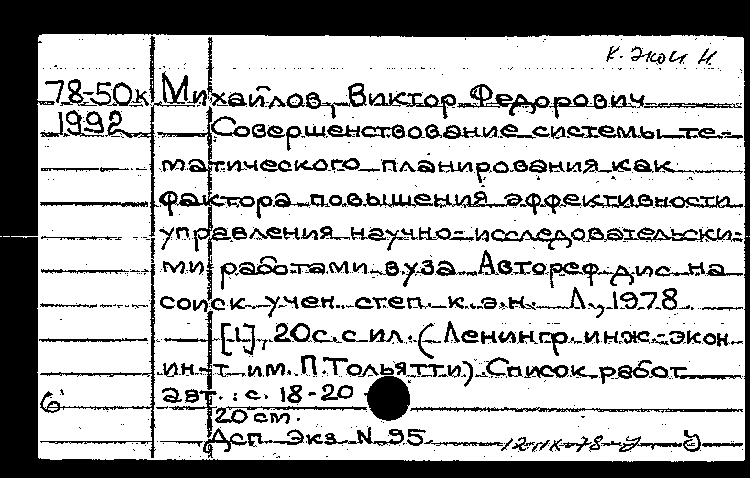 к. экон н.
78-50к Михайлов, Виктор Федорович
1992 Совершенствование системы те-
матического планирования как
фактора повышения эффективности
управления научно-исследовательски-
ми работами вуза Автореф дис на
соиск учен. степ. к.э.н. Л., 1978
[1], 20с. с ил. (Ленингр. инж.-экон
ин-т им. П.Тольятти) Список работ
авт.: с. 18-20
6
20 см.
Дсп Экз N 95